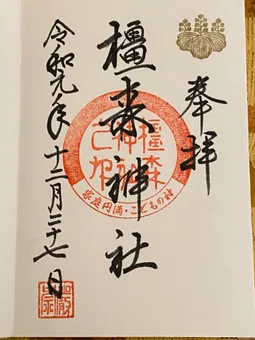 奉拝
橿森神社
橿森
神社
之印
家庭円満・こどもの神
令和元年十二月二十七日